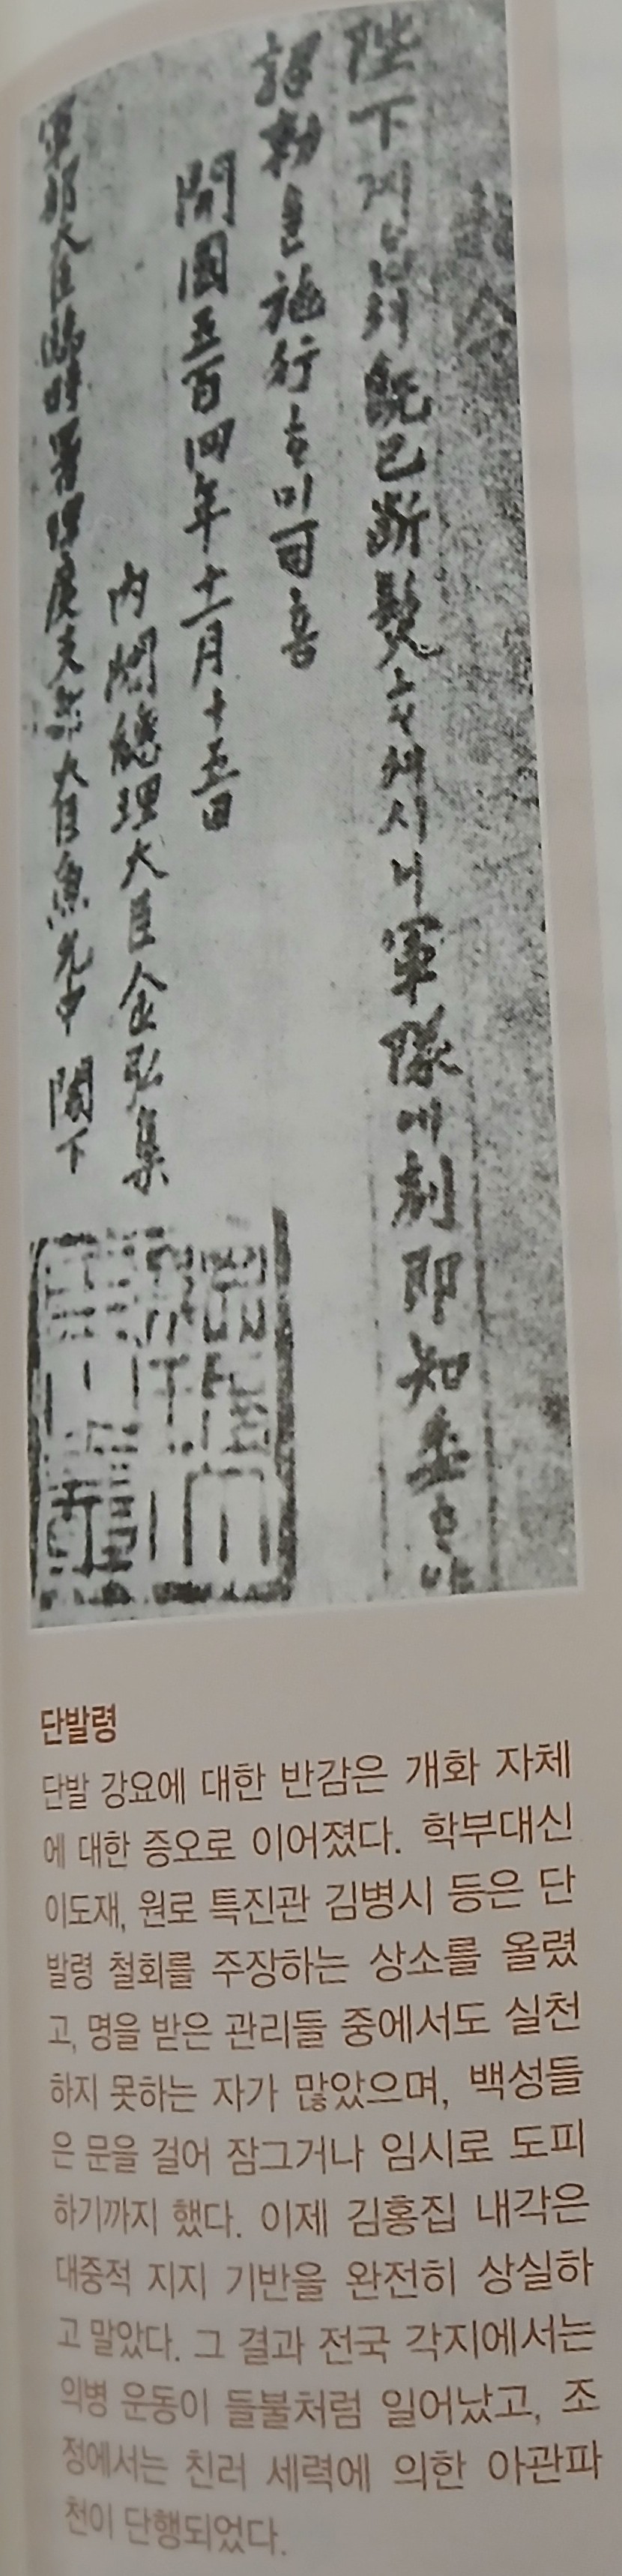 訓令
陛下게읍셔旣已斷髮하셔시니軍隊에刻卽知委하야
詔勅을施行하미可喜
開國五百四年十一月十五日
內閣總理大臣金弘集
軍部大臣臨時署理度支部大臣魚允中 閣下
단발령
단발 강요에 대한 반감은 개화 자체
에 대한 증오로 이어졌다. 학부대신
이도재, 원로 특진관 김병시 등은 단
발령 철회를 주장하는 상소를 올렸
고, 명을 받은 관리들 중에서도 실천
하지 못하는 자가 많았으며, 백성들
은 문을 걸어 잠그거나 임시로 도피
하기까지 했다. 이제 김홍집 내각은
대중적 지지 기반을 완전히 상실하
고 말았다. 그 결과 전국 각지에서는
의병 운동이 들불처럼 일어났고, 조
정에서는 친러 세력에 의한 아관파
천이 단행되었다.